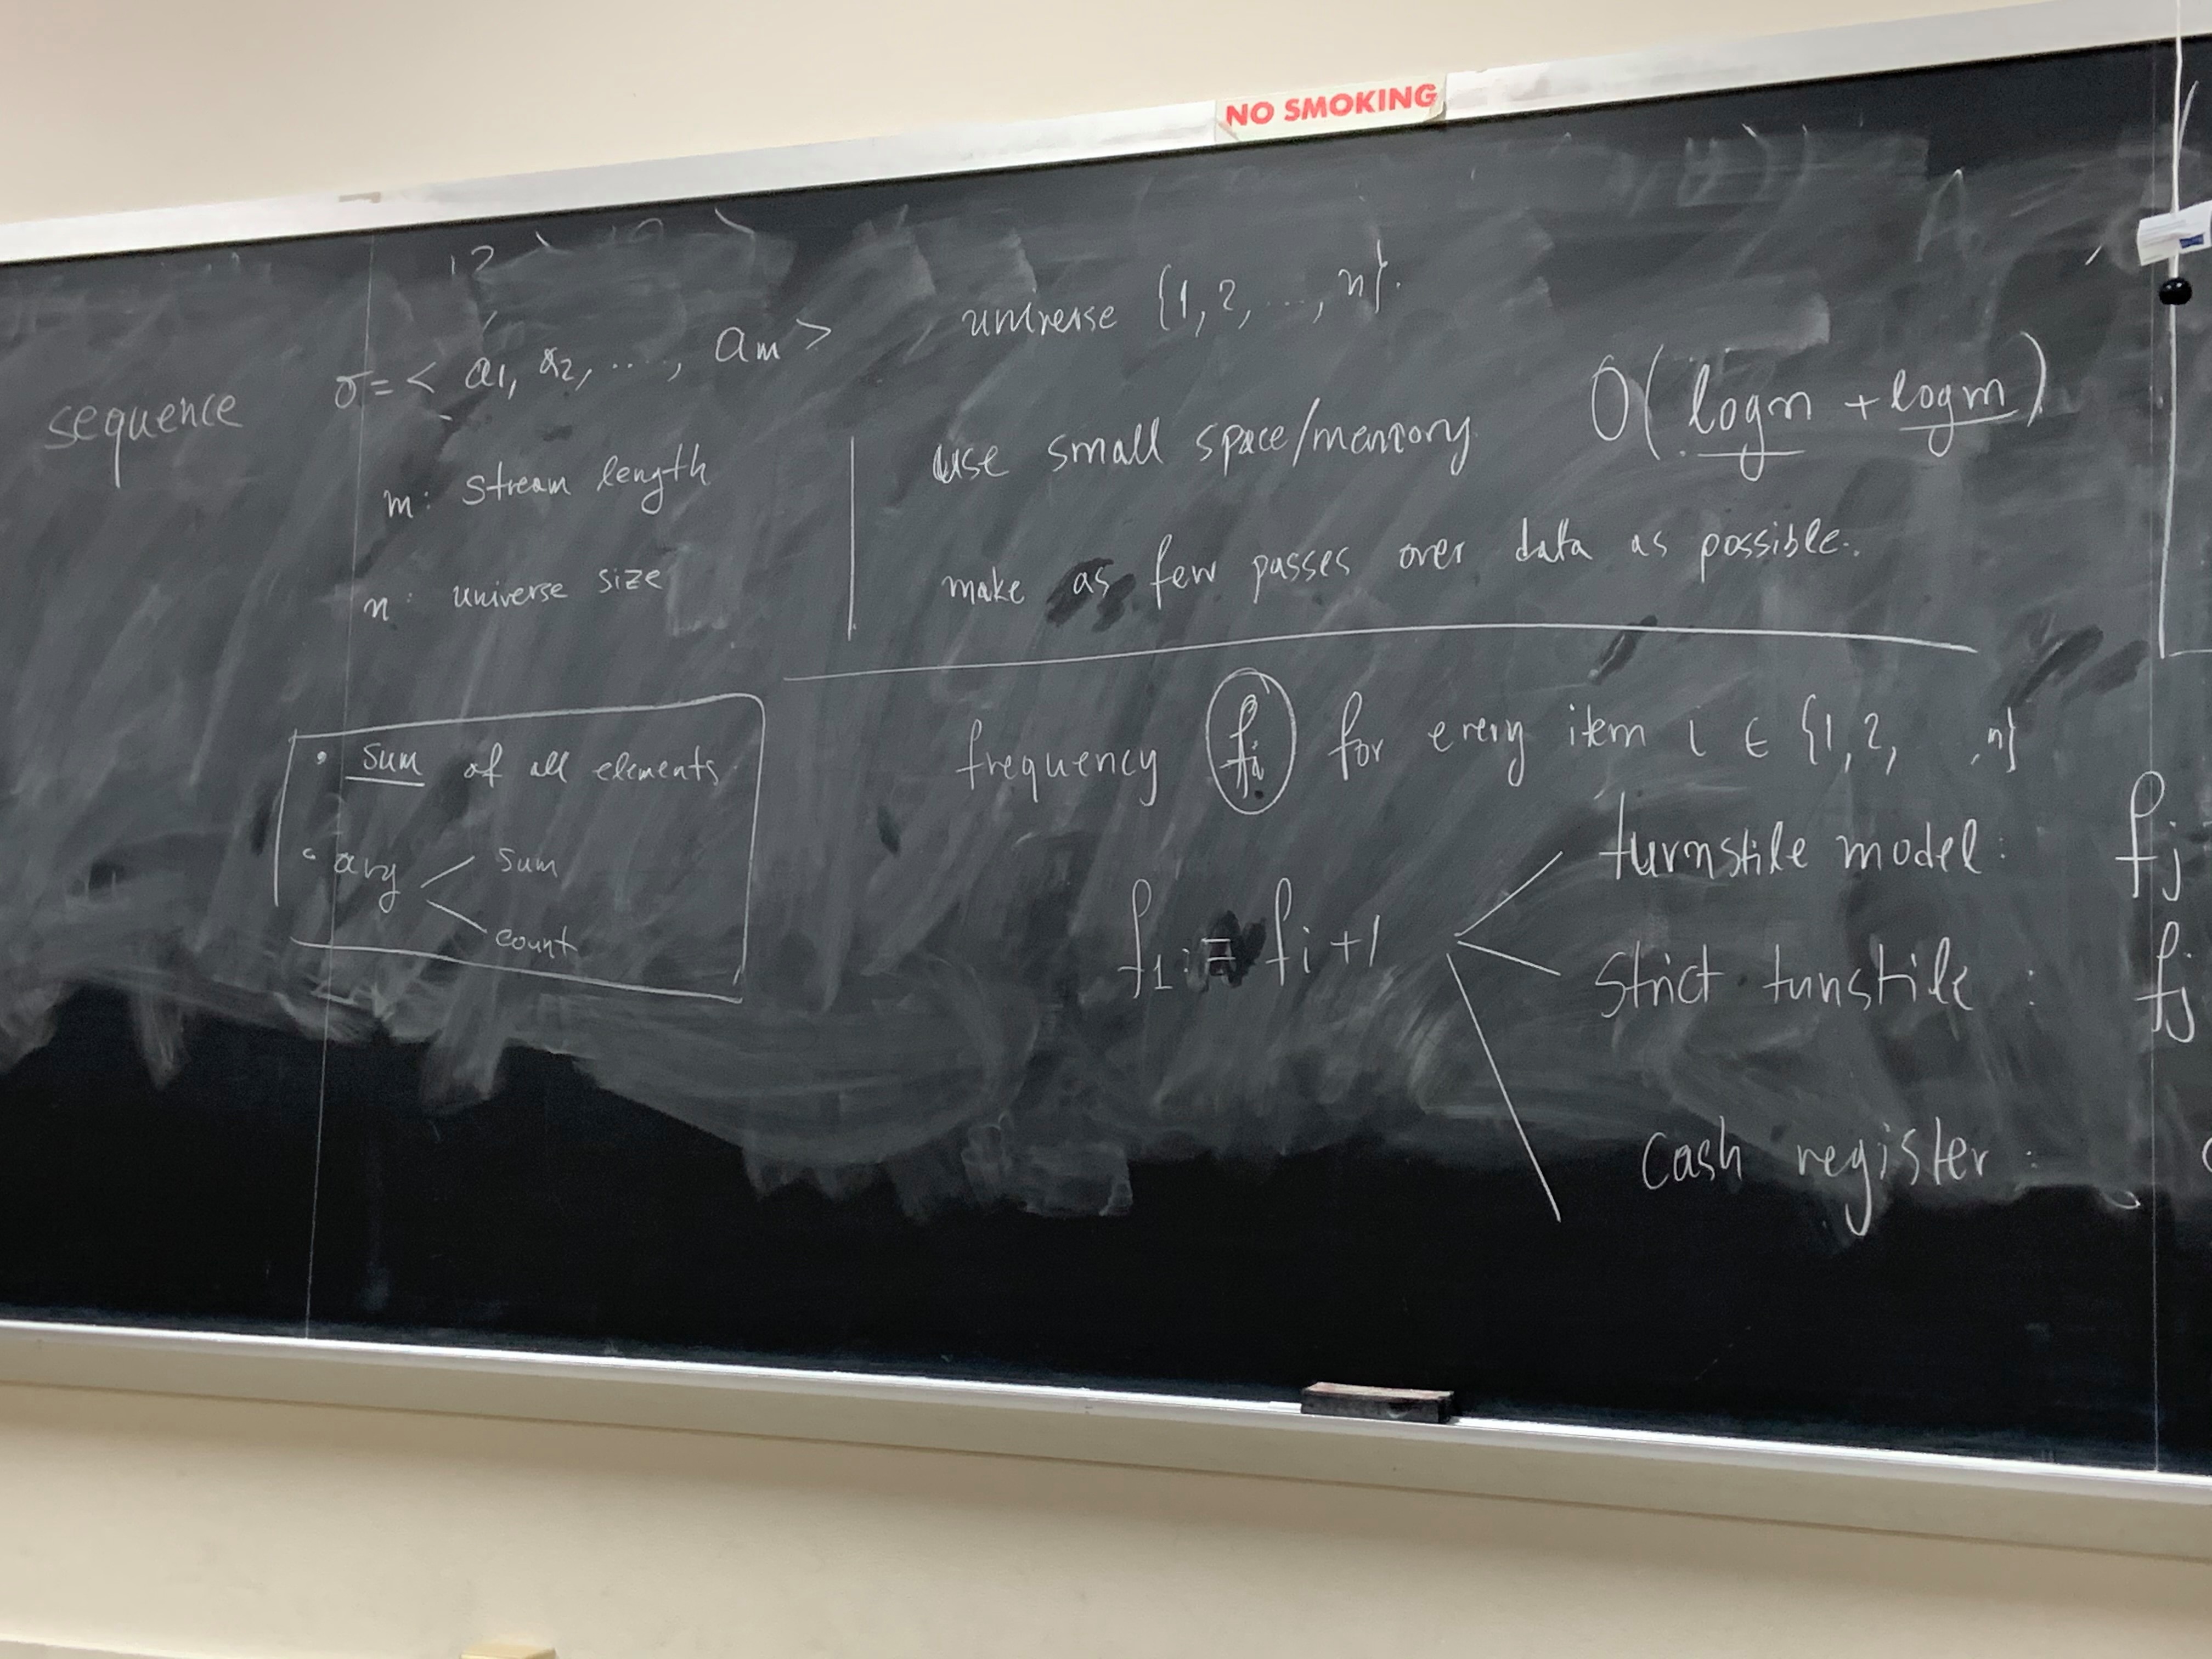 NO SMOKING
12
sequence σ = < a1, a2, ..., am > universe {1, 2, ..., n}.
m: stream length
n: universe size
use small space/memory O( log n + log m )
make as few passes over data as possible.
• sum of all elements
• avg
sum
count
frequency fi for every item i ∈ {1, 2, , n}
f1 := fi + 1
turnstile model: fj
Strict tunstile : fj
Cash register :